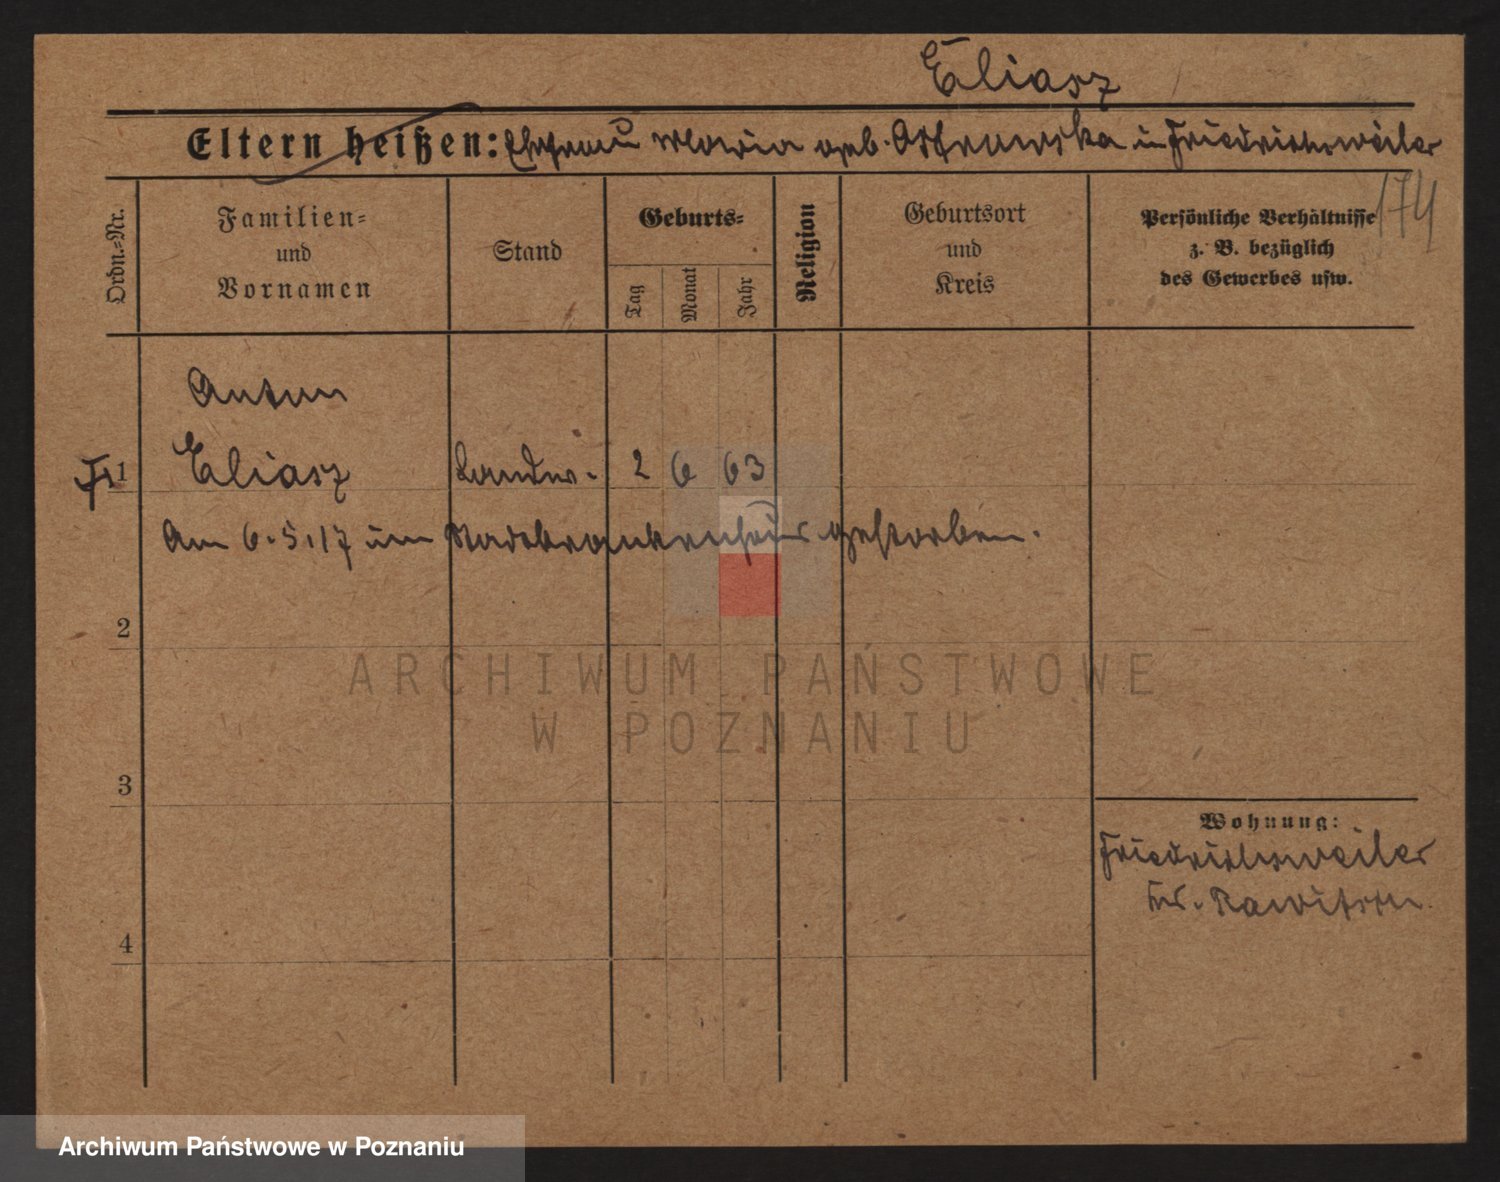 Eliasz
Eltern heißen: Ehefrau Maria geb. in Friedrichsweiler
174
Ordn.=Nr.
Familien=
und
Vornamen
Stand
Geburts=
Tag
Monat
Jahr
Religion
Geburtsort
und
Kreis
Persönliche Verhältnisse
z. B. bezüglich
des Gewerbes usw.
Anton
1 Eliasz Landw. 2 6 63
Am 6.5.17 im Stadtkrankenhaus gestorben.
2
3
4
Wohnung:
Friedrichsweiler
Kr. Rawitsch
ARCHIWUM PAŃSTWOWE
W POZNANIU
Archiwum Państwowe w Poznaniu